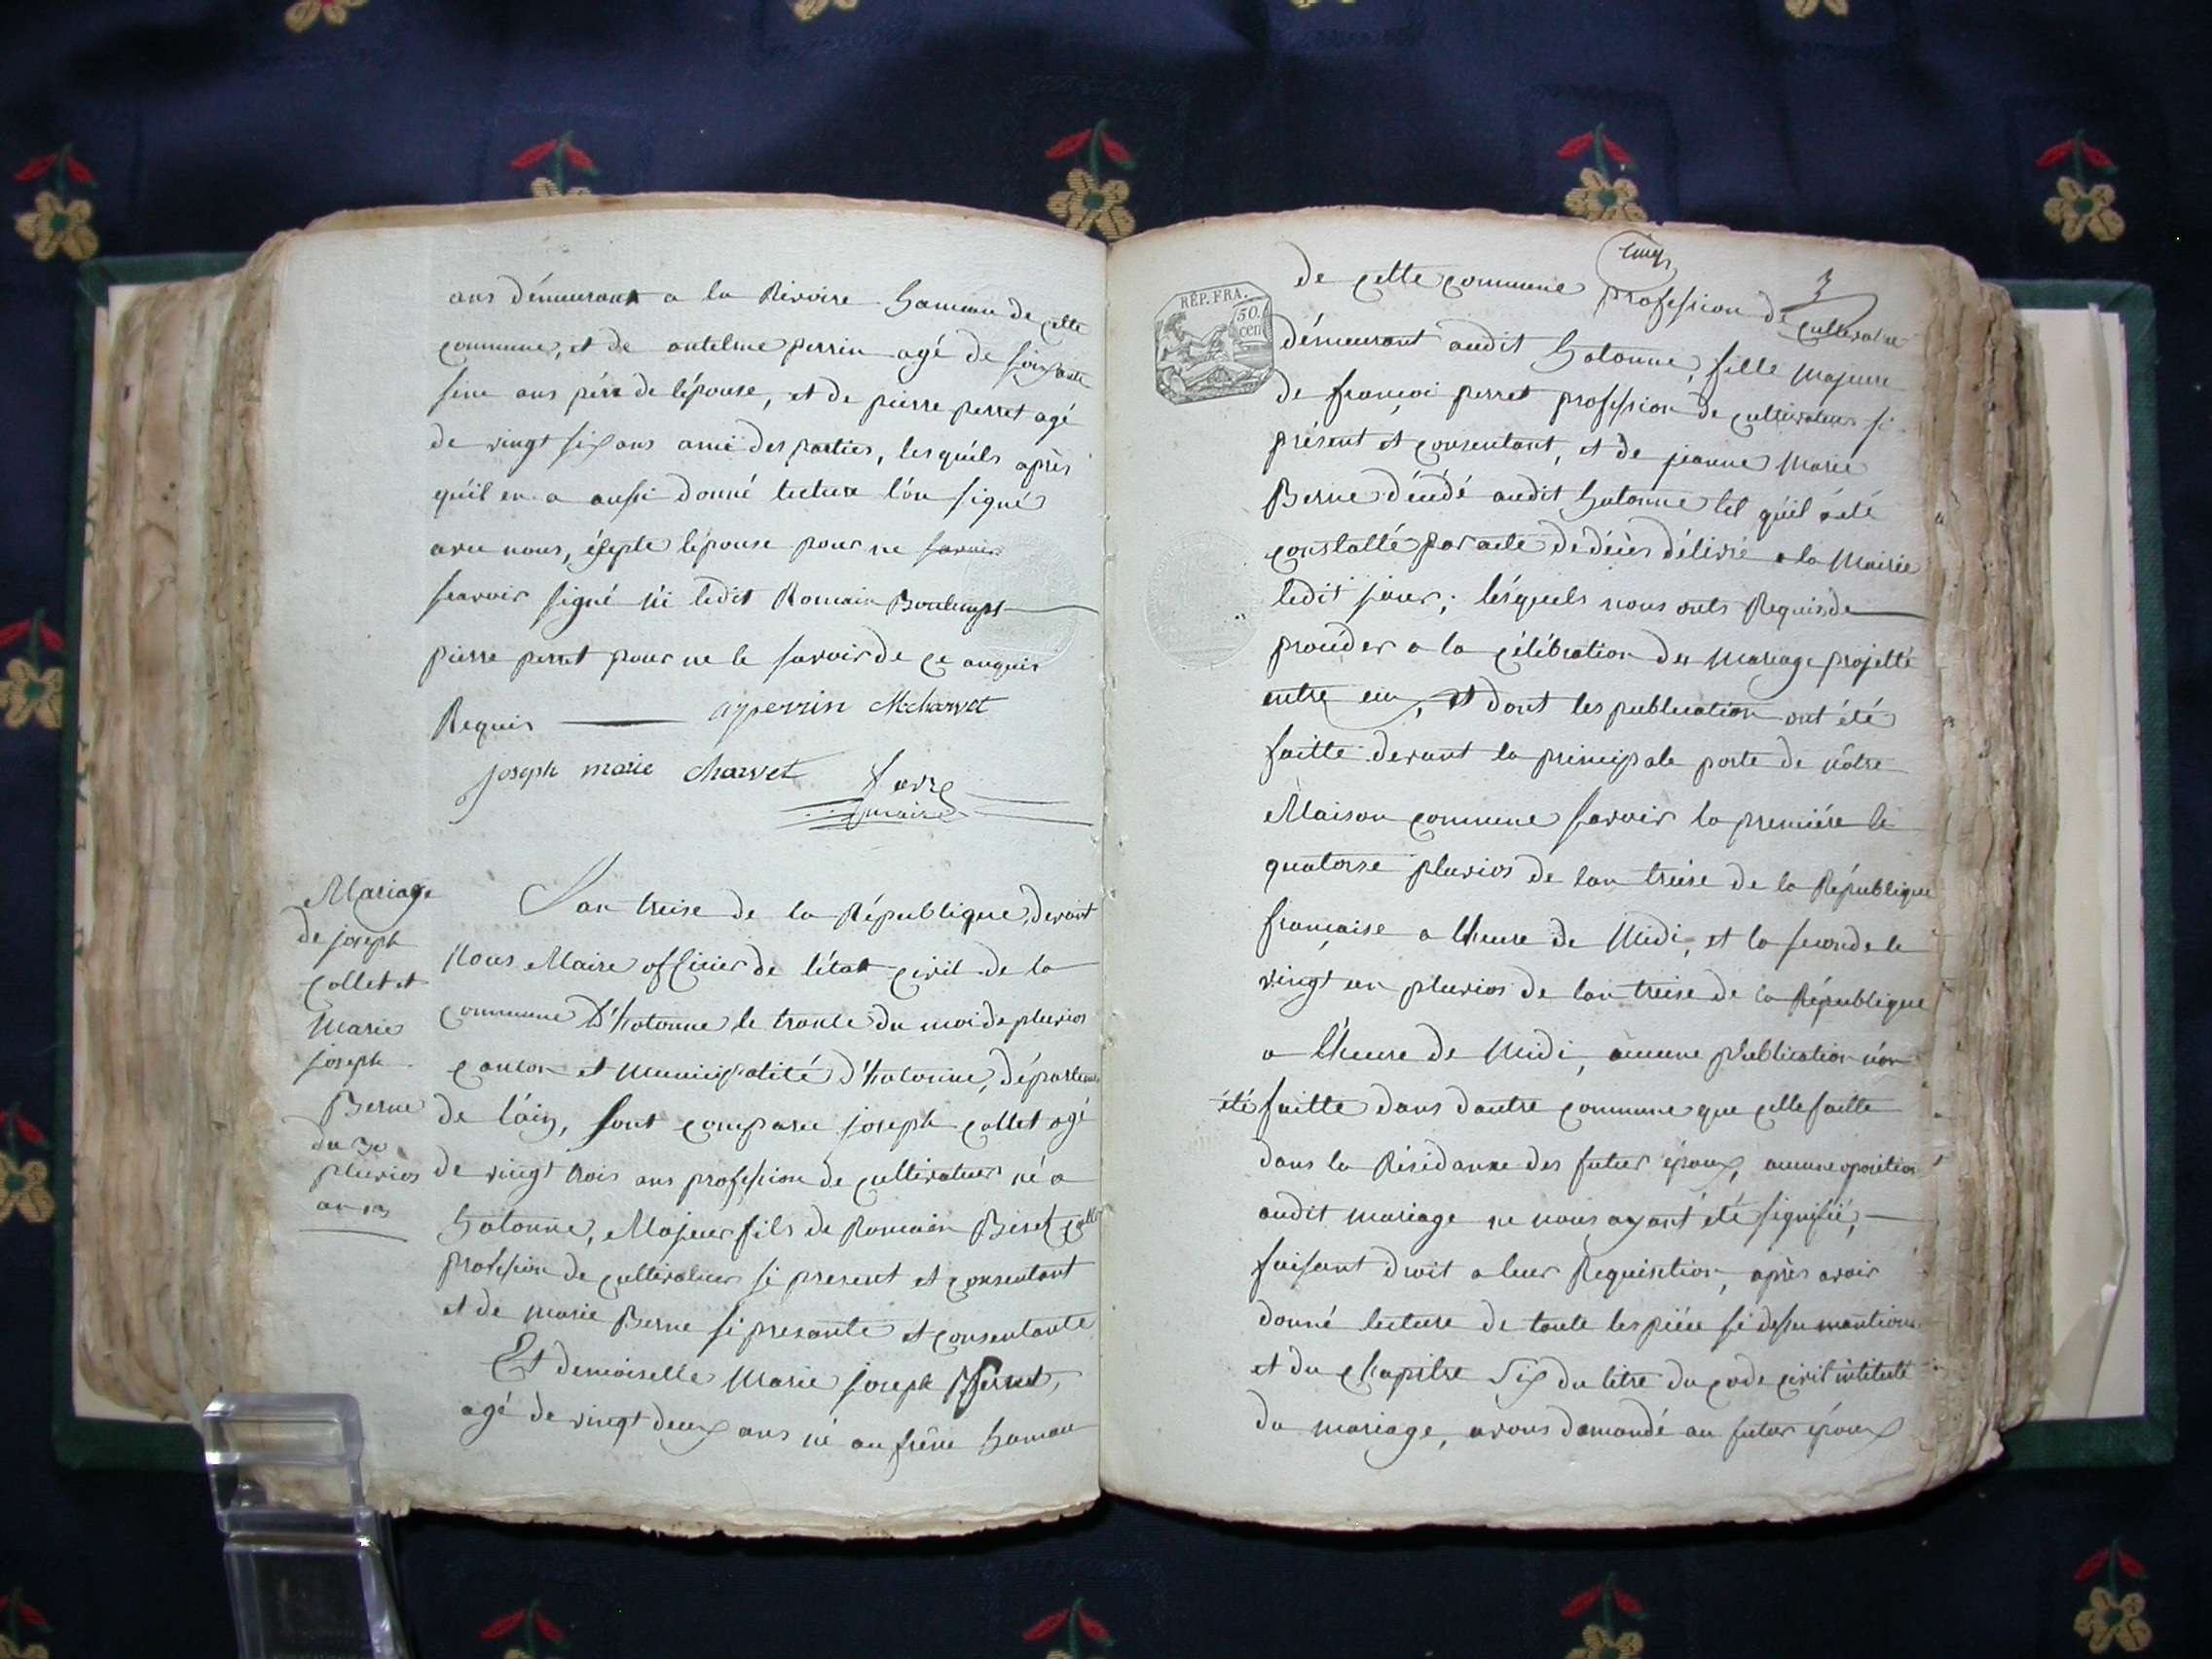 ans démeurant a la Rivoire hameau de cette
commune, et de antelme perrin agé de soixante
ans pére de lépouse, et de pierre perret agé
de vingt six ans ami des parties, lesquils après
quil en a aussi donné lecture lon signé
avec nous, éxepte lépouse pour ne savoir
scavoir signé ni ledit Romain Bontemps
pierre perret pour ne le savoir de ce anquis
Requis ayperrin Mcharvet
joseph marie charvet favre
maire
Mariage
de joseph
collet et
Marie
joseph
Berne
du 30
pluvios
an 13
Lan treise de la République, devant
Nous Maire officier de létat civil de la
commune D'hotonne le trante du moi de pluvios
canton et Municipalité d'hotonne, départem
de láin, sont comparu joseph collet agé
de vingt trois ans profession de cultivateur né a
hotonne, Majeur fils de Romain collet
profession de cultivateur si present et consentant
et de marie Berne si presante et consentante
Et demoiselle Marie joseph Perret,
agé de vingt deux ans né au hamau
3
RÉP. FRA.
50.
cen
de cette commune profession de cultivatrice
démeurant audit hotonne, fille Majeure
de françoi perret profession de cultivateur si
présent et consentant, et de jeanne Marie
Berne décédé audit hotonne tel quil a été
constatté par acte de décès délivré a la Mairie
ledit jour; lésquels nous onts Requis de
procéder a la célébration du mariage projetté
entre eux, et dont les publication ont été
faitte devant la principale porte de nôtre
Maison commune savoir la premiére le
quatorse pluvios de lan treise de la République
française a lheure de Midi, et la seconde le
vingt un pluvios de lan treise de la République
a lheure de Midi, aucune publication non
été faitte dans dautre commune que celle faitte
dans la Résidanse des futur époux, aucune oposition
audit mariage ne nous ayant été signifié,
faisant droit a leur Requisition, après avoir
donné lecture de toute les piéce si dessu mantionné
et du chapitre Six du titre du code civil intitulé
du mariage, avons demandé au futur époux